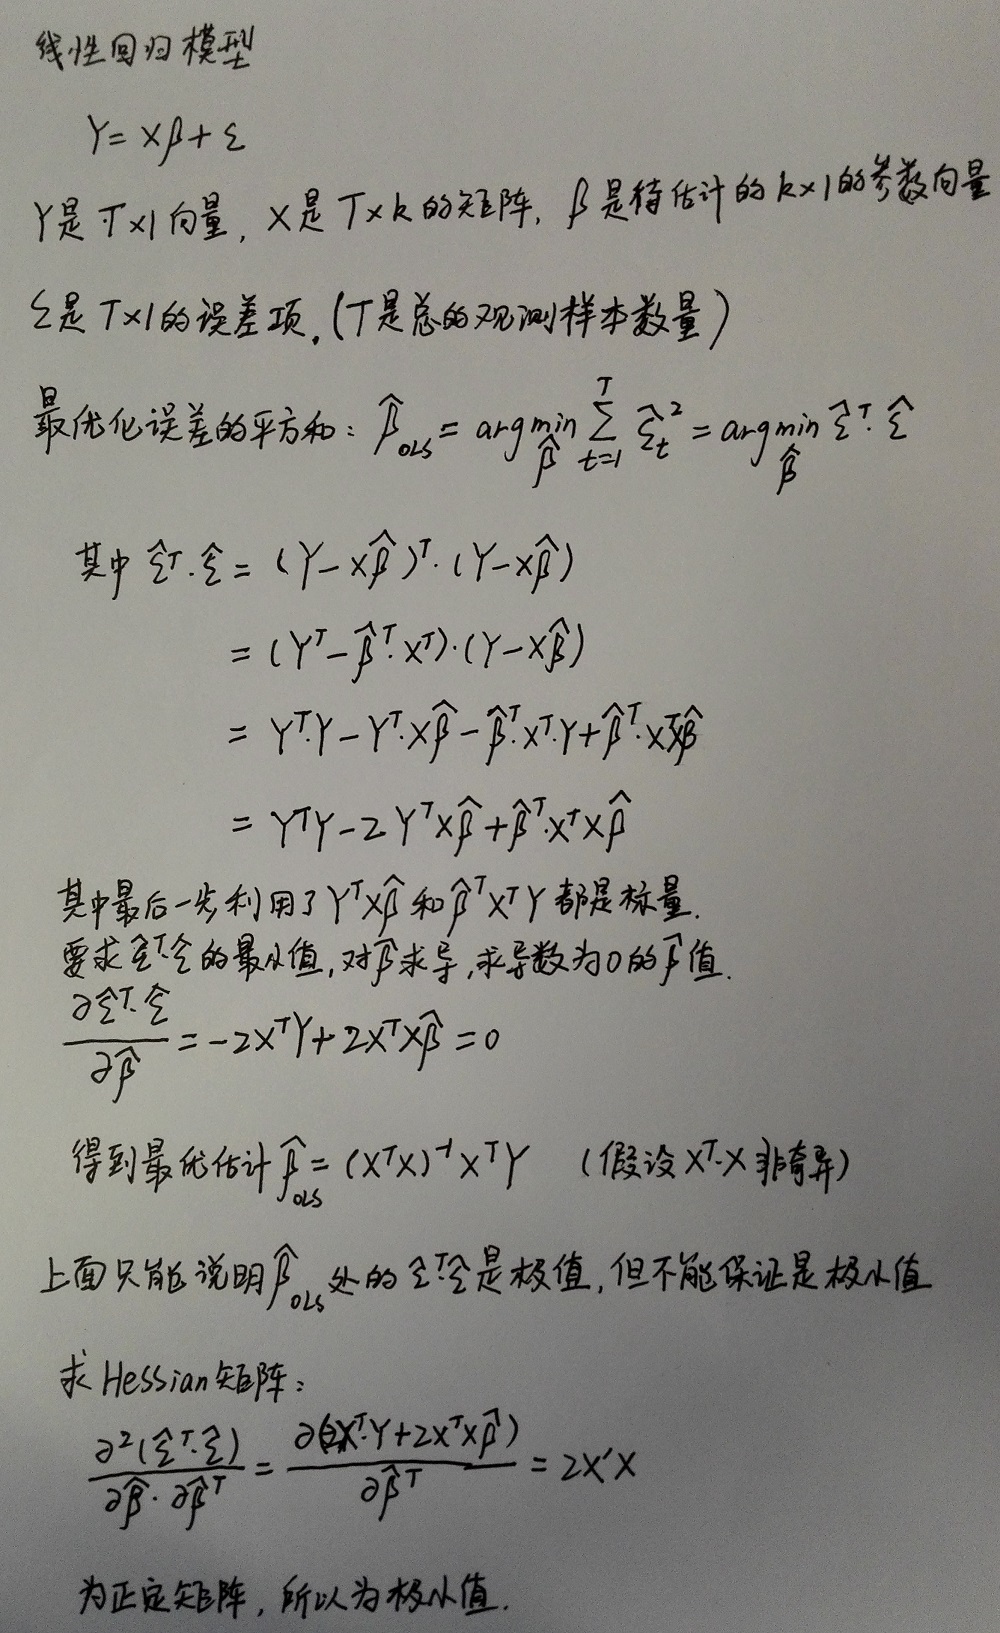 线性回归模型
Y = Xβ + ε
Y是T×1向量, X是T×k的矩阵, β是待估计的k×1的参数向量
ε是T×1的误差项.(T是总的观测样本数量)
最优化误差的平方和: β̂_OLS = argmin_β̂ ∑_{t=1}^T ε̂_t² = argmin_β̂ ε̂ᵀ·ε̂
其中 ε̂ᵀ·ε̂ = (Y-Xβ̂)ᵀ·(Y-Xβ̂)
= (Yᵀ-β̂ᵀ·Xᵀ)·(Y-Xβ̂)
= Yᵀ·Y-Yᵀ·Xβ̂-β̂ᵀ·Xᵀ·Y+β̂ᵀ·XᵀXβ̂
= YᵀY-2YᵀXβ̂+β̂ᵀ·XᵀXβ̂
其中最后一步利用了YᵀXβ̂和β̂ᵀXᵀY都是标量.
要求ε̂ᵀ·ε̂的最小值,对β̂求导,求导数为0的β̂值.
∂ε̂ᵀ·ε̂/∂β̂ = -2XᵀY+2XᵀXβ̂ = 0
得到最优估计β̂_OLS = (XᵀX)⁻¹XᵀY (假设Xᵀ·X非奇异)
上面只能说明β̂_OLS处的ε̂ᵀ·ε̂是极值,但不能保证是极小值
求Hessian矩阵:
∂²(ε̂ᵀ·ε̂)/∂β̂·∂β̂ᵀ = ∂(-2Xᵀ·Y+2XᵀXβ̂)/∂β̂ᵀ = 2X'X
为正定矩阵,所以为极小值.